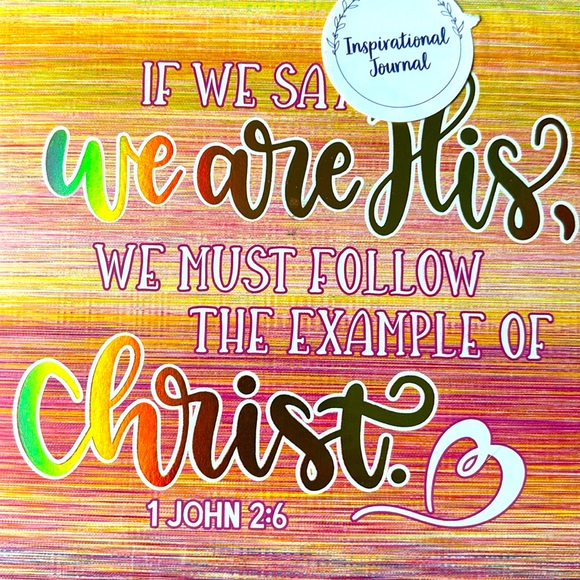 Inspirational
Journal
IF WE SAY
we are His,
WE MUST FOLLOW
THE EXAMPLE OF
Christ.
1 JOHN 2:6